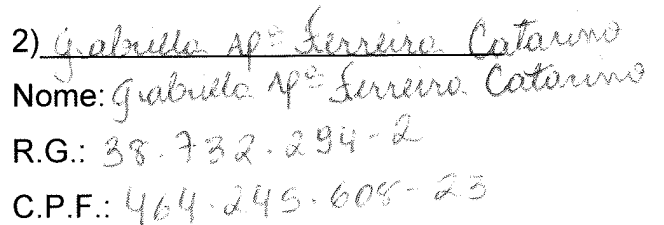 2) Gabriella Apª Ferreira Catarino
Nome: Gabriella Apª Ferreira Catarino
R.G.: 38.732.294-2
C.P.F.: 464.245.608-23